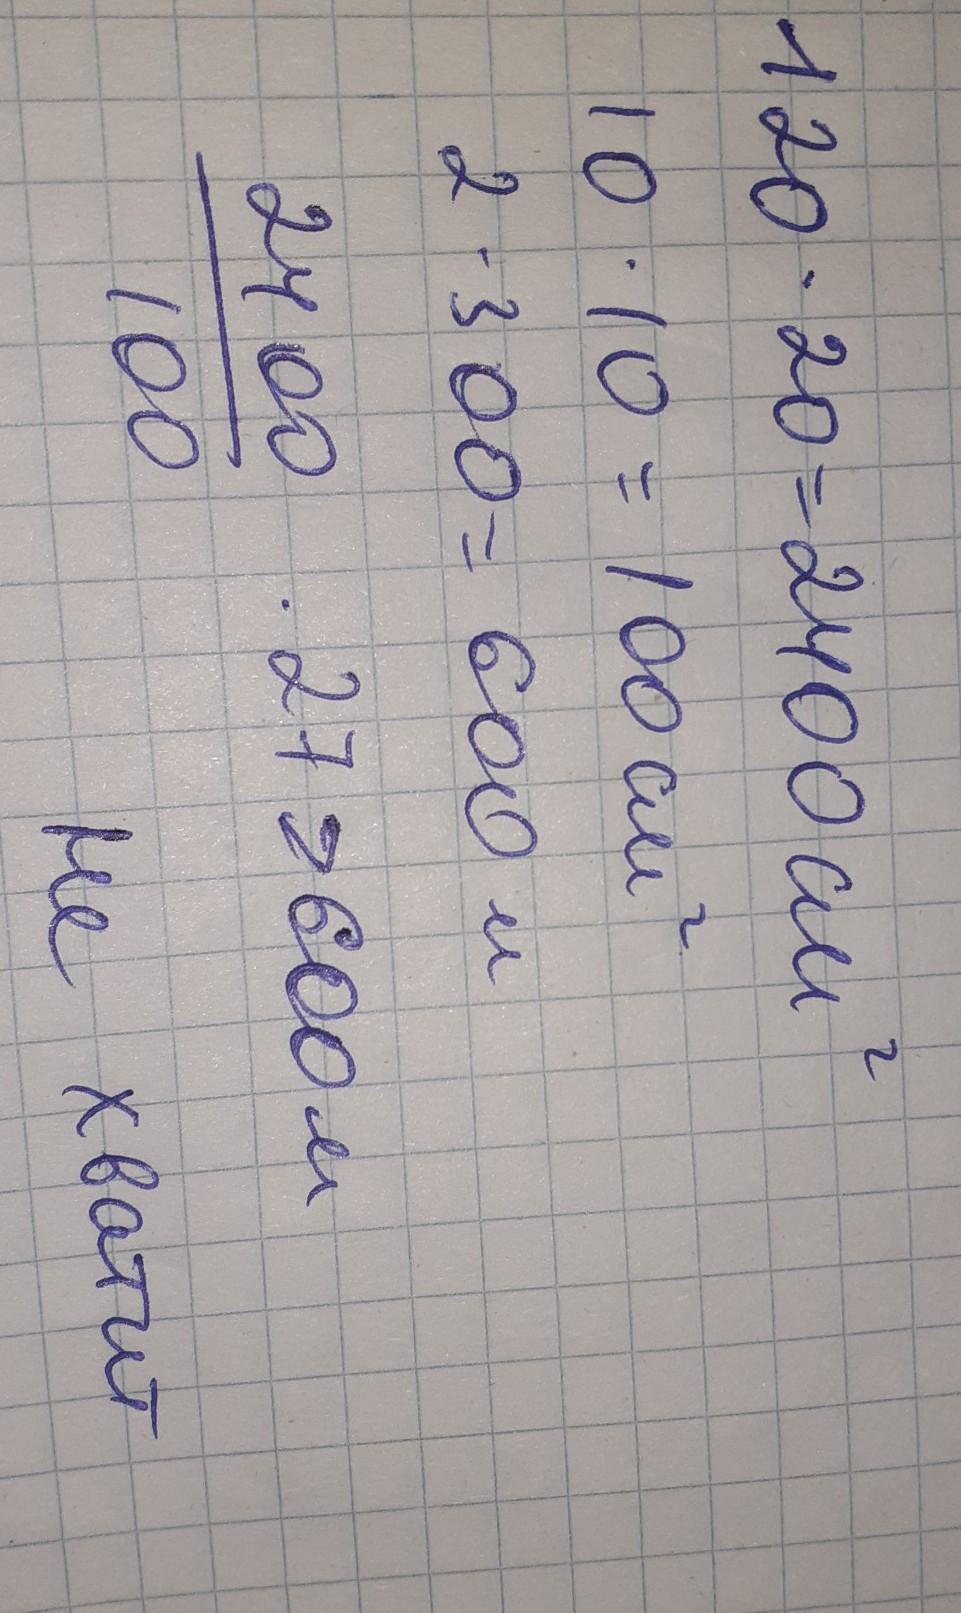 120 · 20 = 2400 см²
10 · 10 = 100 см²
2 · 300 = 600 м
2400
100
· 27 > 600 м
Не хватит